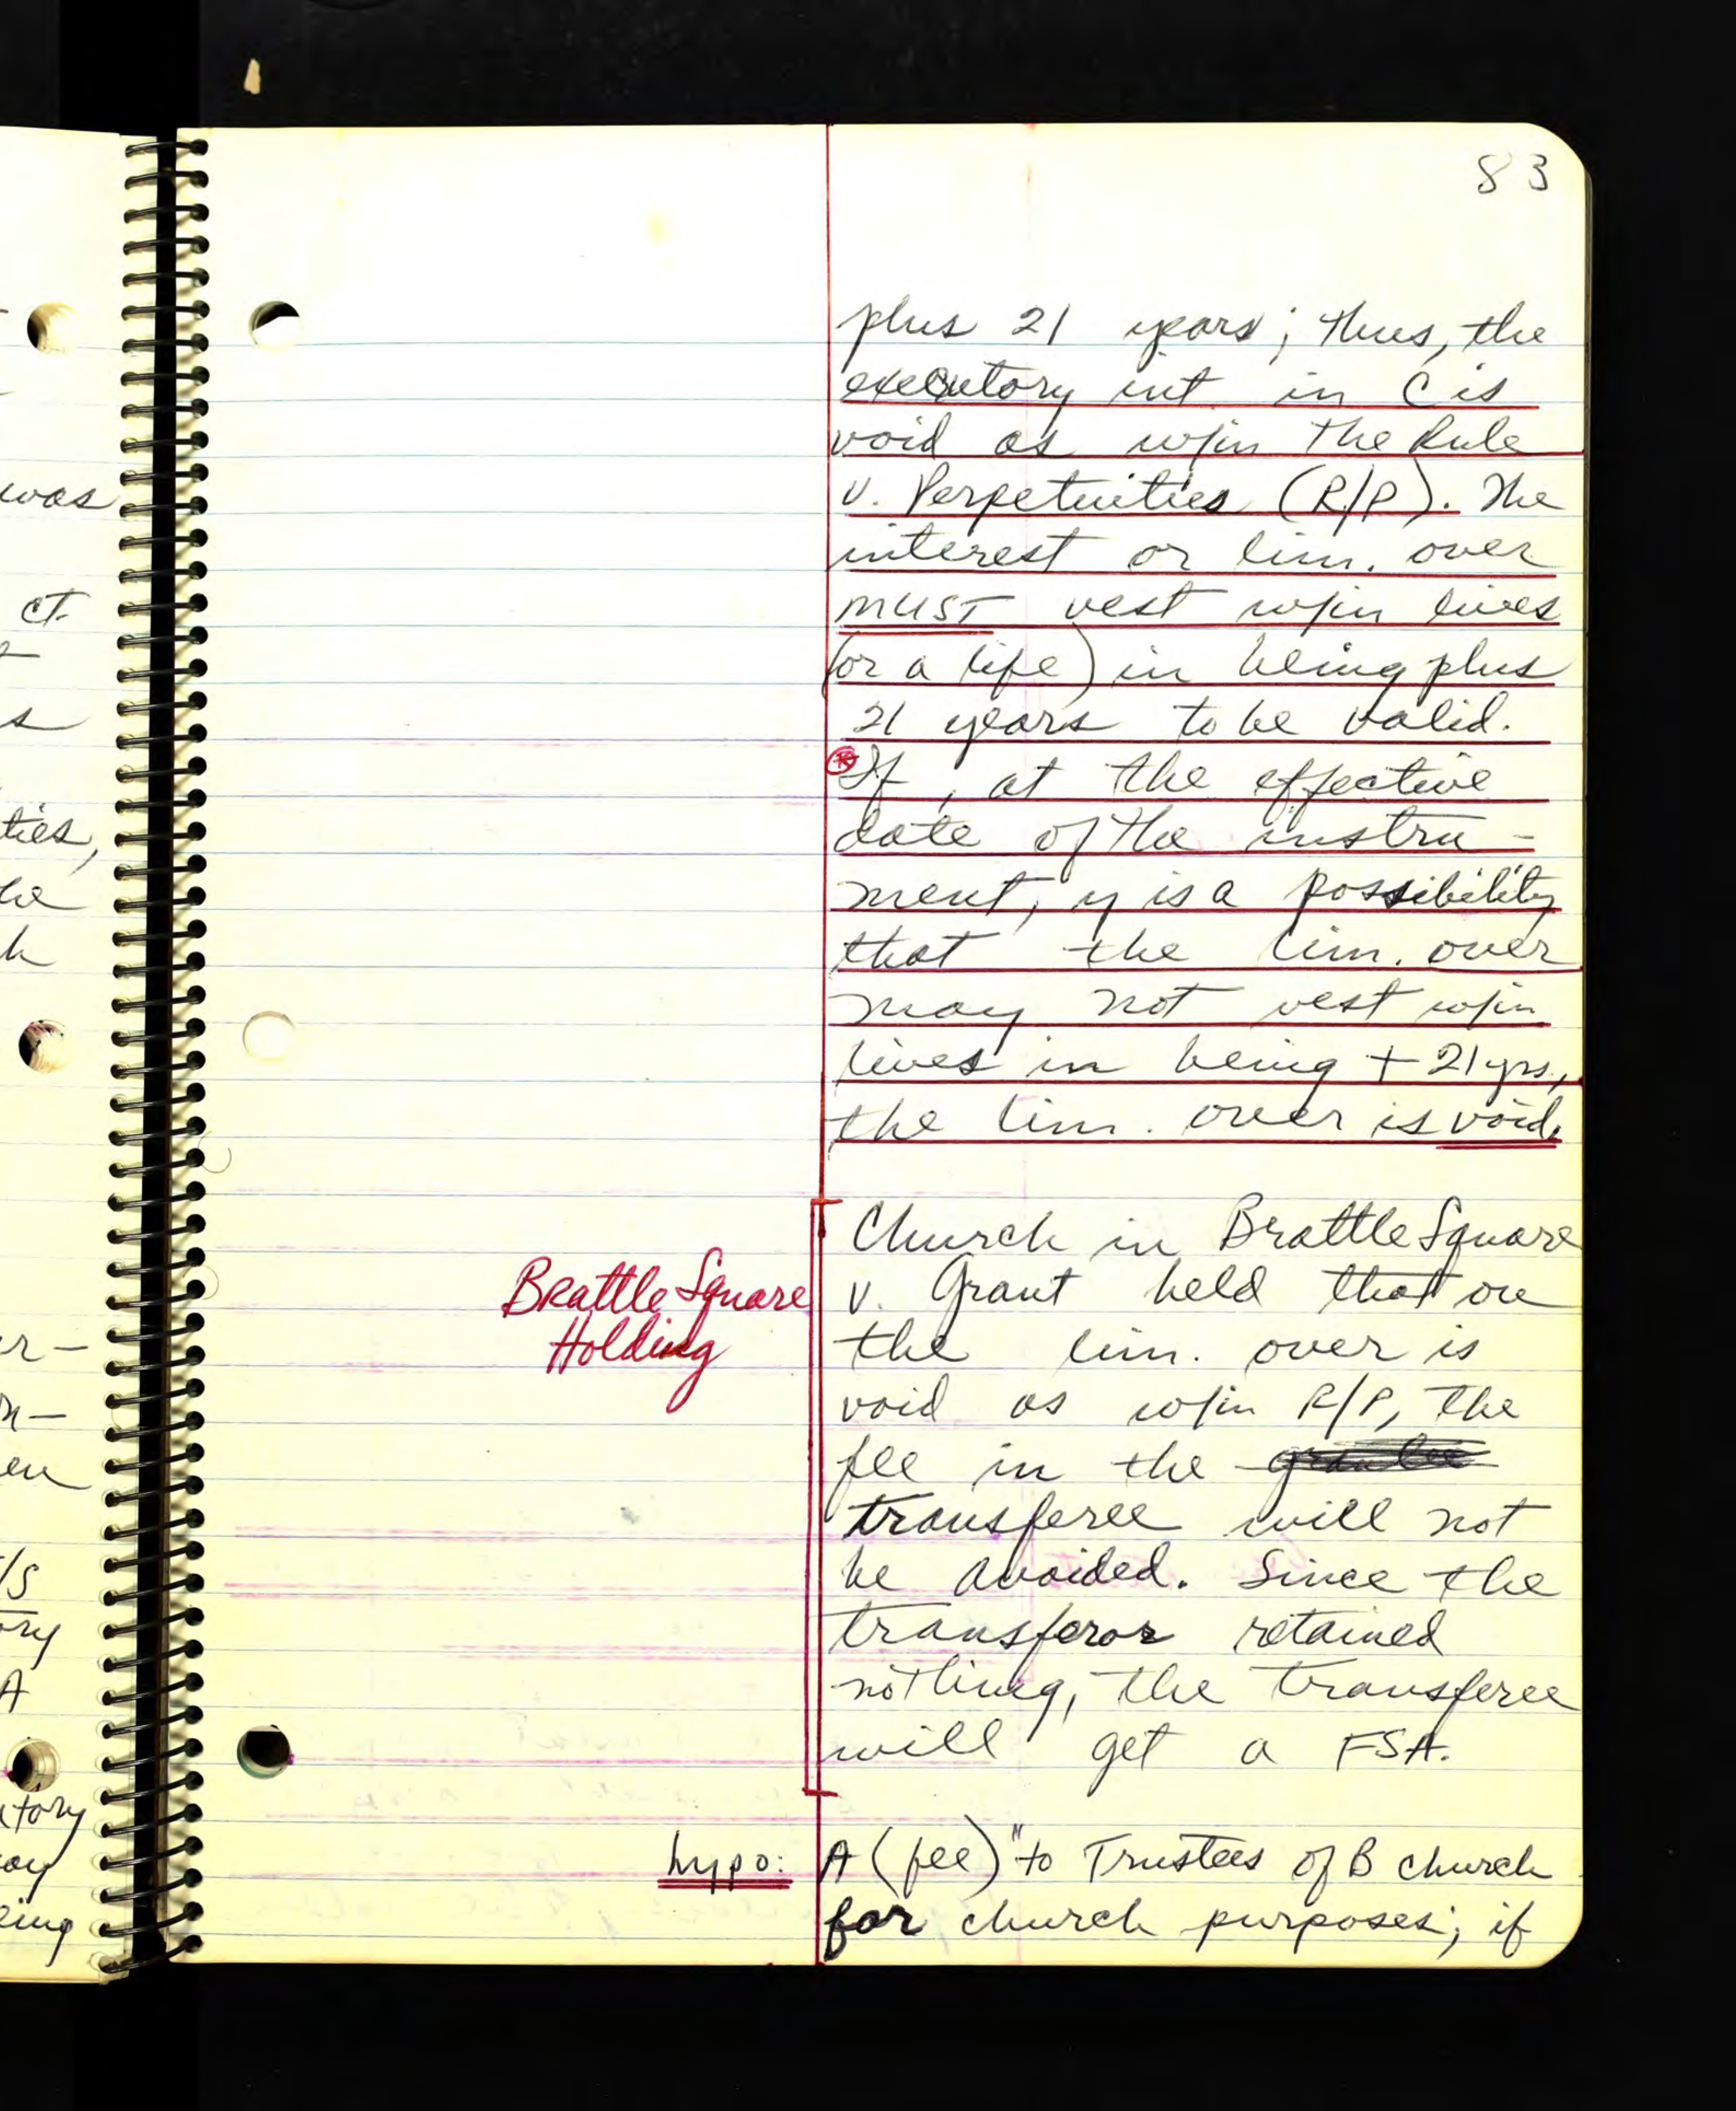 was
ct.
s
ties,
he
h
er-
n-
en
/s
ory
A
tory
oy
eing
83
plus 21 years; thus, the
executory int. in C is
void as w/in the Rule
v. Perpetuities (R/P). The
interest or lim. over
MUST vest w/in lives
(or a life) in being plus
21 years to be valid.
* If, at the effective
date of the instru-
ment, y is a possibility
that the lim. over
may not vest w/in
lives in being + 21 yrs.,
the lim. over is void.
Brattle Square
Holding
Church in Brattle Square
v. Grant held that
the lim. over is
void as w/in R/P, the
fee in the grantee
transferee will not
be avoided. Since the
transferor retained
nothing, the transferee
will get a FSA.
hypo: A (fee) "to Trustees of B church
for church purposes; if